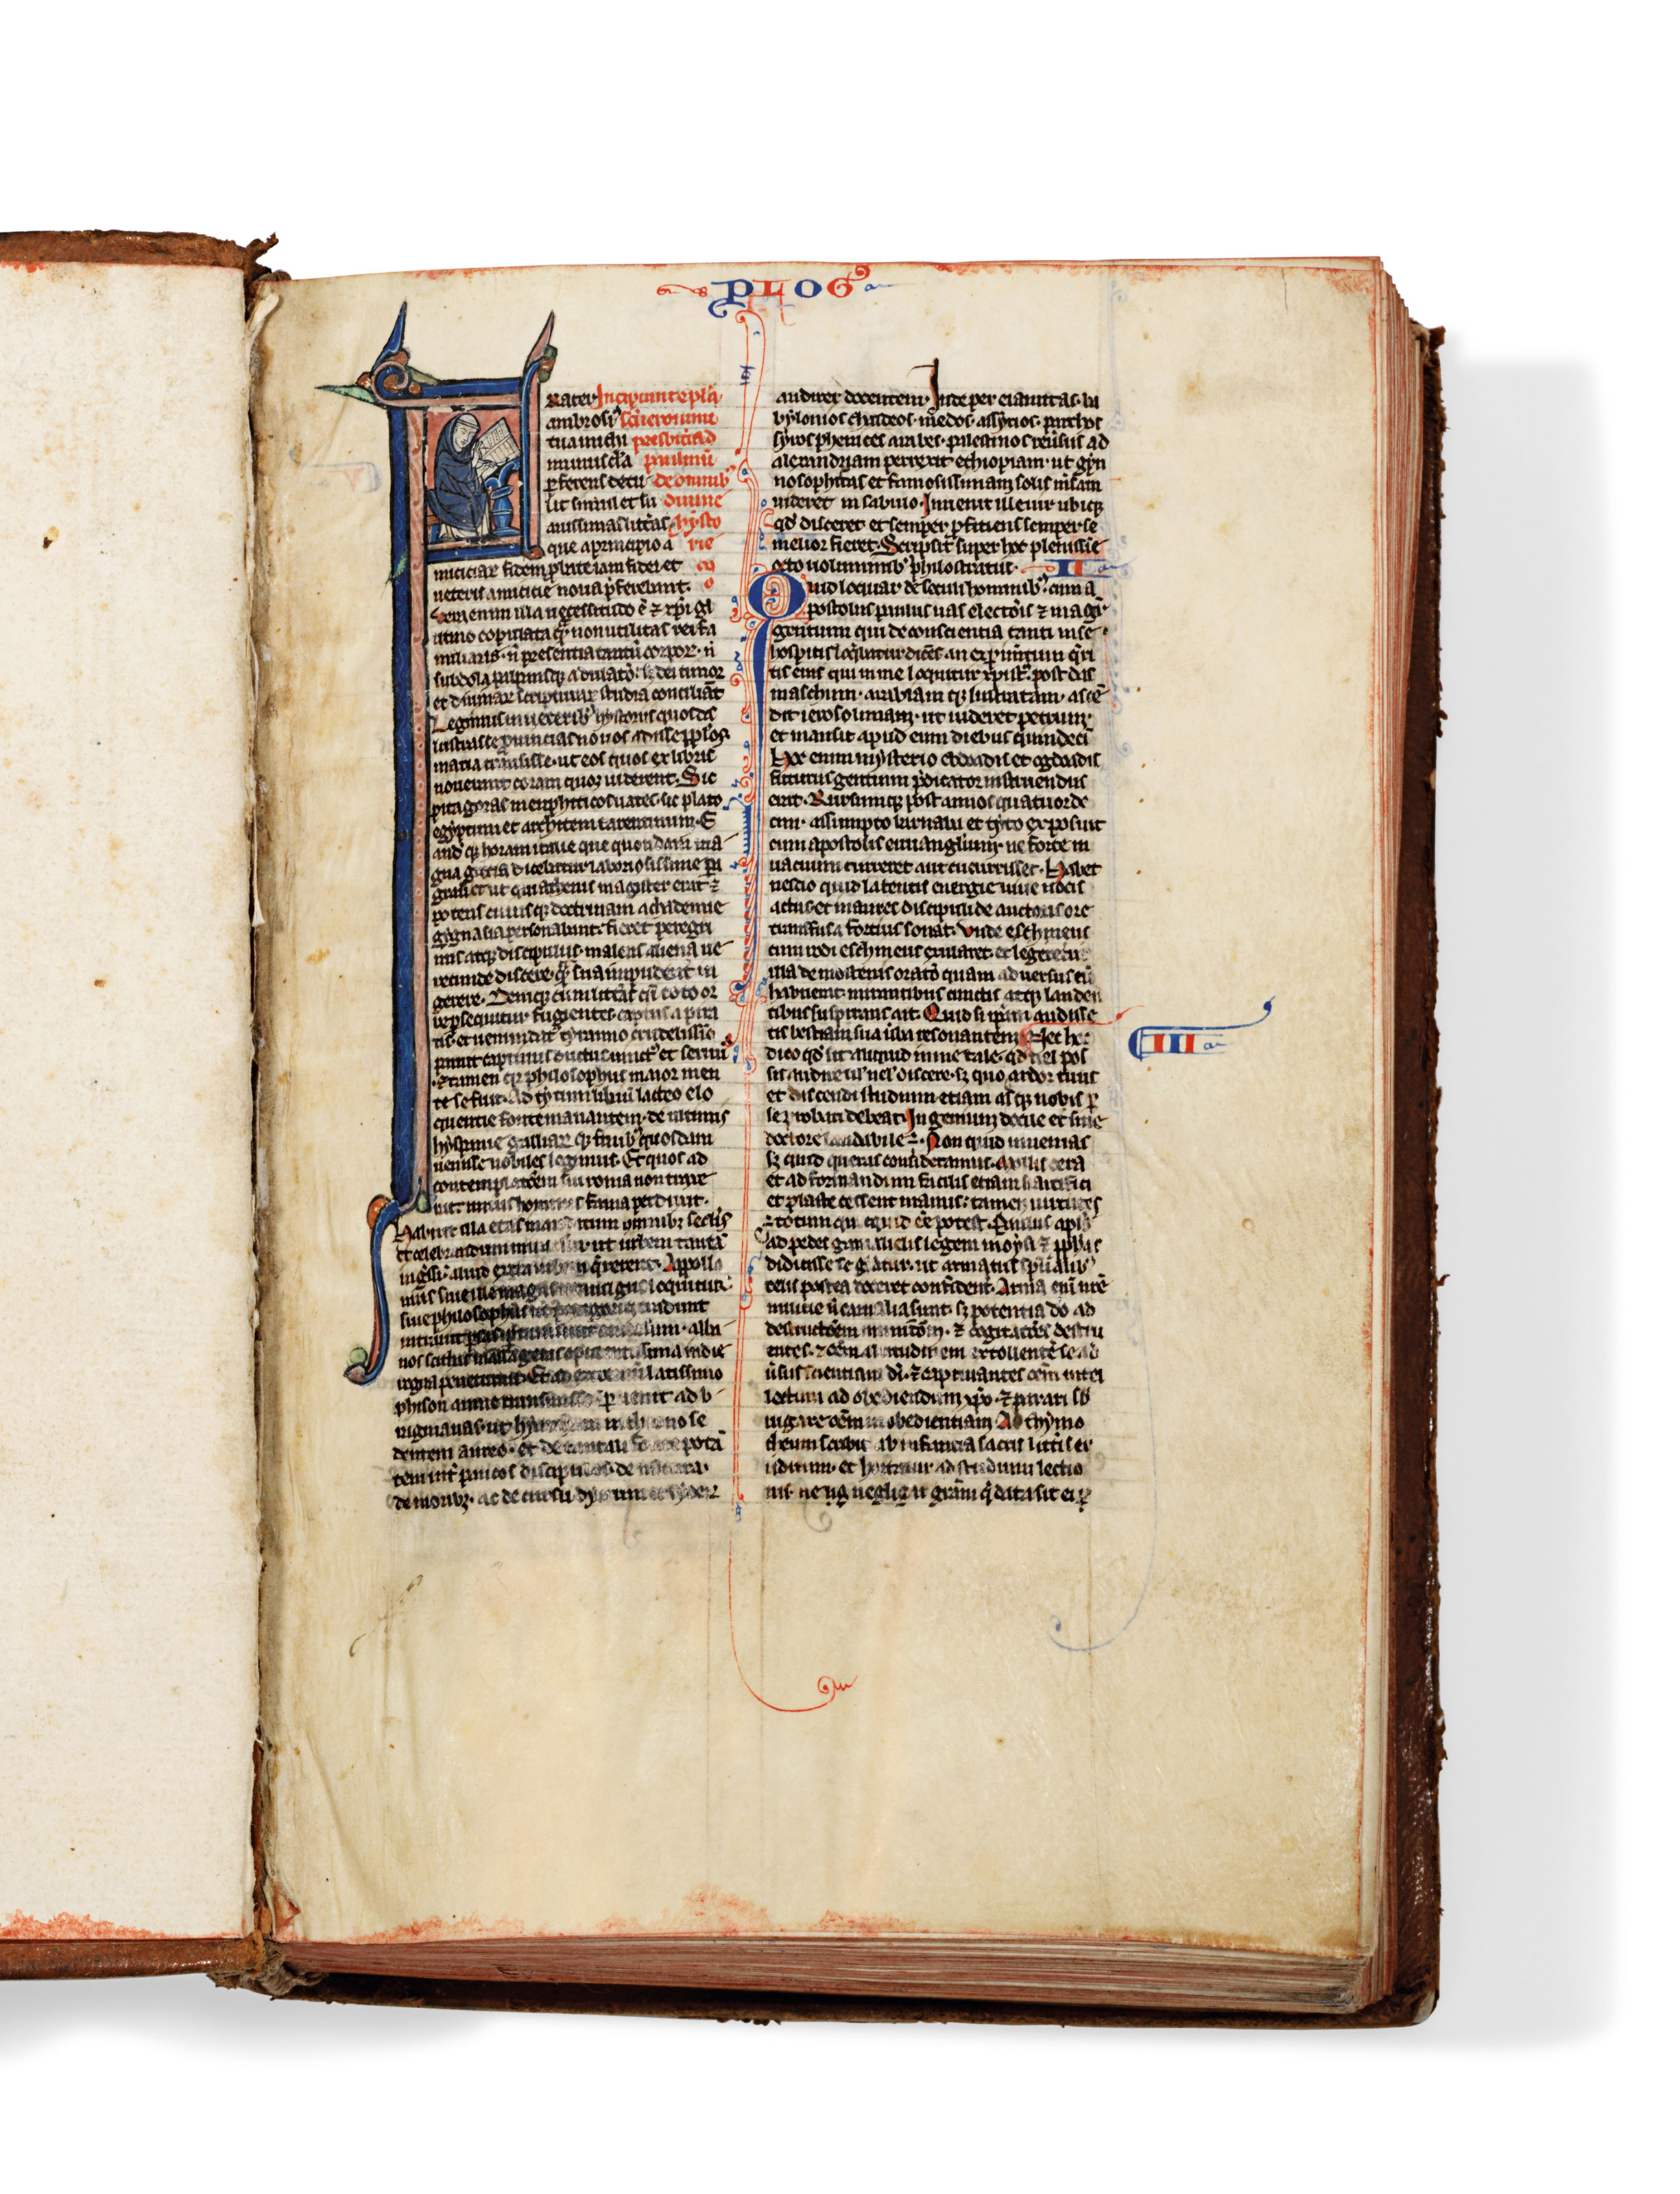 PLOG
Rater Incipiunt epla
ambrosi sci ieronimi
tua michi presbiti ad
munuscla paulinu
pferens detu de omnib
lit simul et su diuine
auissimas litt̄as hysto
que a principio a rie
miciciar fidem pbate iam fidei et
ueteris amicicie noua pferebant.
Vera enim illa necessitudo ē ⁊ xp̄i gl
utino copulata q̄ non utilitas rei fa
miliaris. n̄ presentia tantū corpor. n̄
subdola palpansq adulatō. s; dei timor
et diuinar scripturar studia conciliāt
Legimus in ueterib hystoriis quosdā
lustrasse puincias nouos adisse pplos
maria transisse. ut eos quos ex libris
nouerant coram quoq uiderent. Sic
pitagoras menphiticos uates. sic plato
egyptum et architem tarentinum. E
andē q horam italie que quondam ma
gna grecia dicebatur laboriosissime pa
grauit ut qui athenis magister erat ⁊
potens cuius q doctrinam achademie
gygnasia personabant. fieret peregri
nus atq discipulus. malens aliena ue
recunde discere. q̄ sua impudent̄ in
gerere. Deniq cum litt̄as q̄i toto or
be psequitur fugientes. captus a pira
tis et uenundat tyranno crudelissimo
paruit captiuus uinctus et seruus
⁊ tamen qr philosophus maior emen
te se fuit. Ad tytum libiū lacteo elo
quentie fonte manantem. de ultimis
hyspanie galliar q finib quosdam
uenisse nobiles legimus. Et quos ad
contemplatōem sui roma non traxe
rat. unius hominis fama perduxit.
Habuit illa etas inauditum omnib; seclis
et celebrandum miraculum. ut urbem tantā
ingssi. aliud extra urbem q̄rerent. Appollo
nius siue ille magus
siue philosophus
intrauit persas
nos scithas massagetas opulentissima indie
regna penetrauit. Et ad extremū latissimo
phison amne transmisso puenit ad b
ragmanas. ut hyarcham in throno se
dentem aureo. et de tantali fonte potā
tem int̄ paucos discipulos. de natura.
de moribz. ac de cursu dyerum et syder
audiret docentem. Inde per elamitas. ba
bylonios chaldeos. medos. assyrios. parthos
syros phenices arabes. palestinos reūsus ad
alexandriam perrexit ethiopiam. ut gyn
nosophistas et famosissimam solis m̄sam
uideret in sabulo. Inuenit ille uir ubiq
qd disceret et semper pficiens semper se
melior fieret. Scripsit super hoc plenissie
octo uoluminib philostratus. II
Quid loquar de seculi hominib. cum a
postolus paulus uas electōis ⁊ magr
gentium qui de conscientia tanti in se
hospitis loqbatur dicēs an experimtum qri
tis eius qui in me loquitur xpist. post da
maschum. arabiam q lustratam. ascē
dit ierosolimam. ut uideret petrum.
et mansit apud eum diebus quindeci
Hoc enim mysterio ebdoadis et ogdoadis
futurus gentium pdicator instruendus
erat. Rursumq post annos quatuorde
cim. assumpto barnaba et tyto exposuit
cum apostolis euuanglium. ne forte in
uacuum curreret aut cucurrisset. Habet
nescio quid latentis energie uiue uocis
actus. et in aures discipuli de auctoris ore
transfusa fortius sonat. Vnde eschineus
cum rodi eschineus exularet. et legeretur
illa demostenis oratō quam aduersus eū
habuerat. mirantibus cunctis atq lauden
tibus suspirans ait. Quid si ipam audisse
tis bestiam sua uba resonantem Nec hoc
III
dico qd sit aliquid in me tale. qd uel pos
sis audire ul uel discere. s; quo ardor tuus
et discendi studium etiam absq nobis p
se pbari debeat. Ingenium docile et sine
doctore laudabile ē. Non quid inuenias
s; quid queris consideramus. Mollis cera
et ad formandum facilis etiam si artifici
et plaste cessent manus. tamen uirtutes
⁊ totum quicquid ēē potest. Paulus apls
ad pedes gamalielis legem moysi ⁊ pphas
didicisse se gl̄atur. ut armatus spūalib
telis postea doceret confident̄. Arma eni nr̄e
militie n̄ carnalia sunt. s; potentia dō ad
destructōem munitōm. ⁊ cogitatōes destru
entes. ⁊ ōem altitudinem extollentē se ad
ūsus scientiam di. ⁊ captiuantes ōem intel
lectum ad obediendum xpo. ⁊ parati sb
iugare ōem inobedientiam. Ad thymo
theum scribit ab infantia sacris litt̄is er
uditum. et hortatur ad studium lectio
nis. ne ngligat grām q̄ data sit ei p